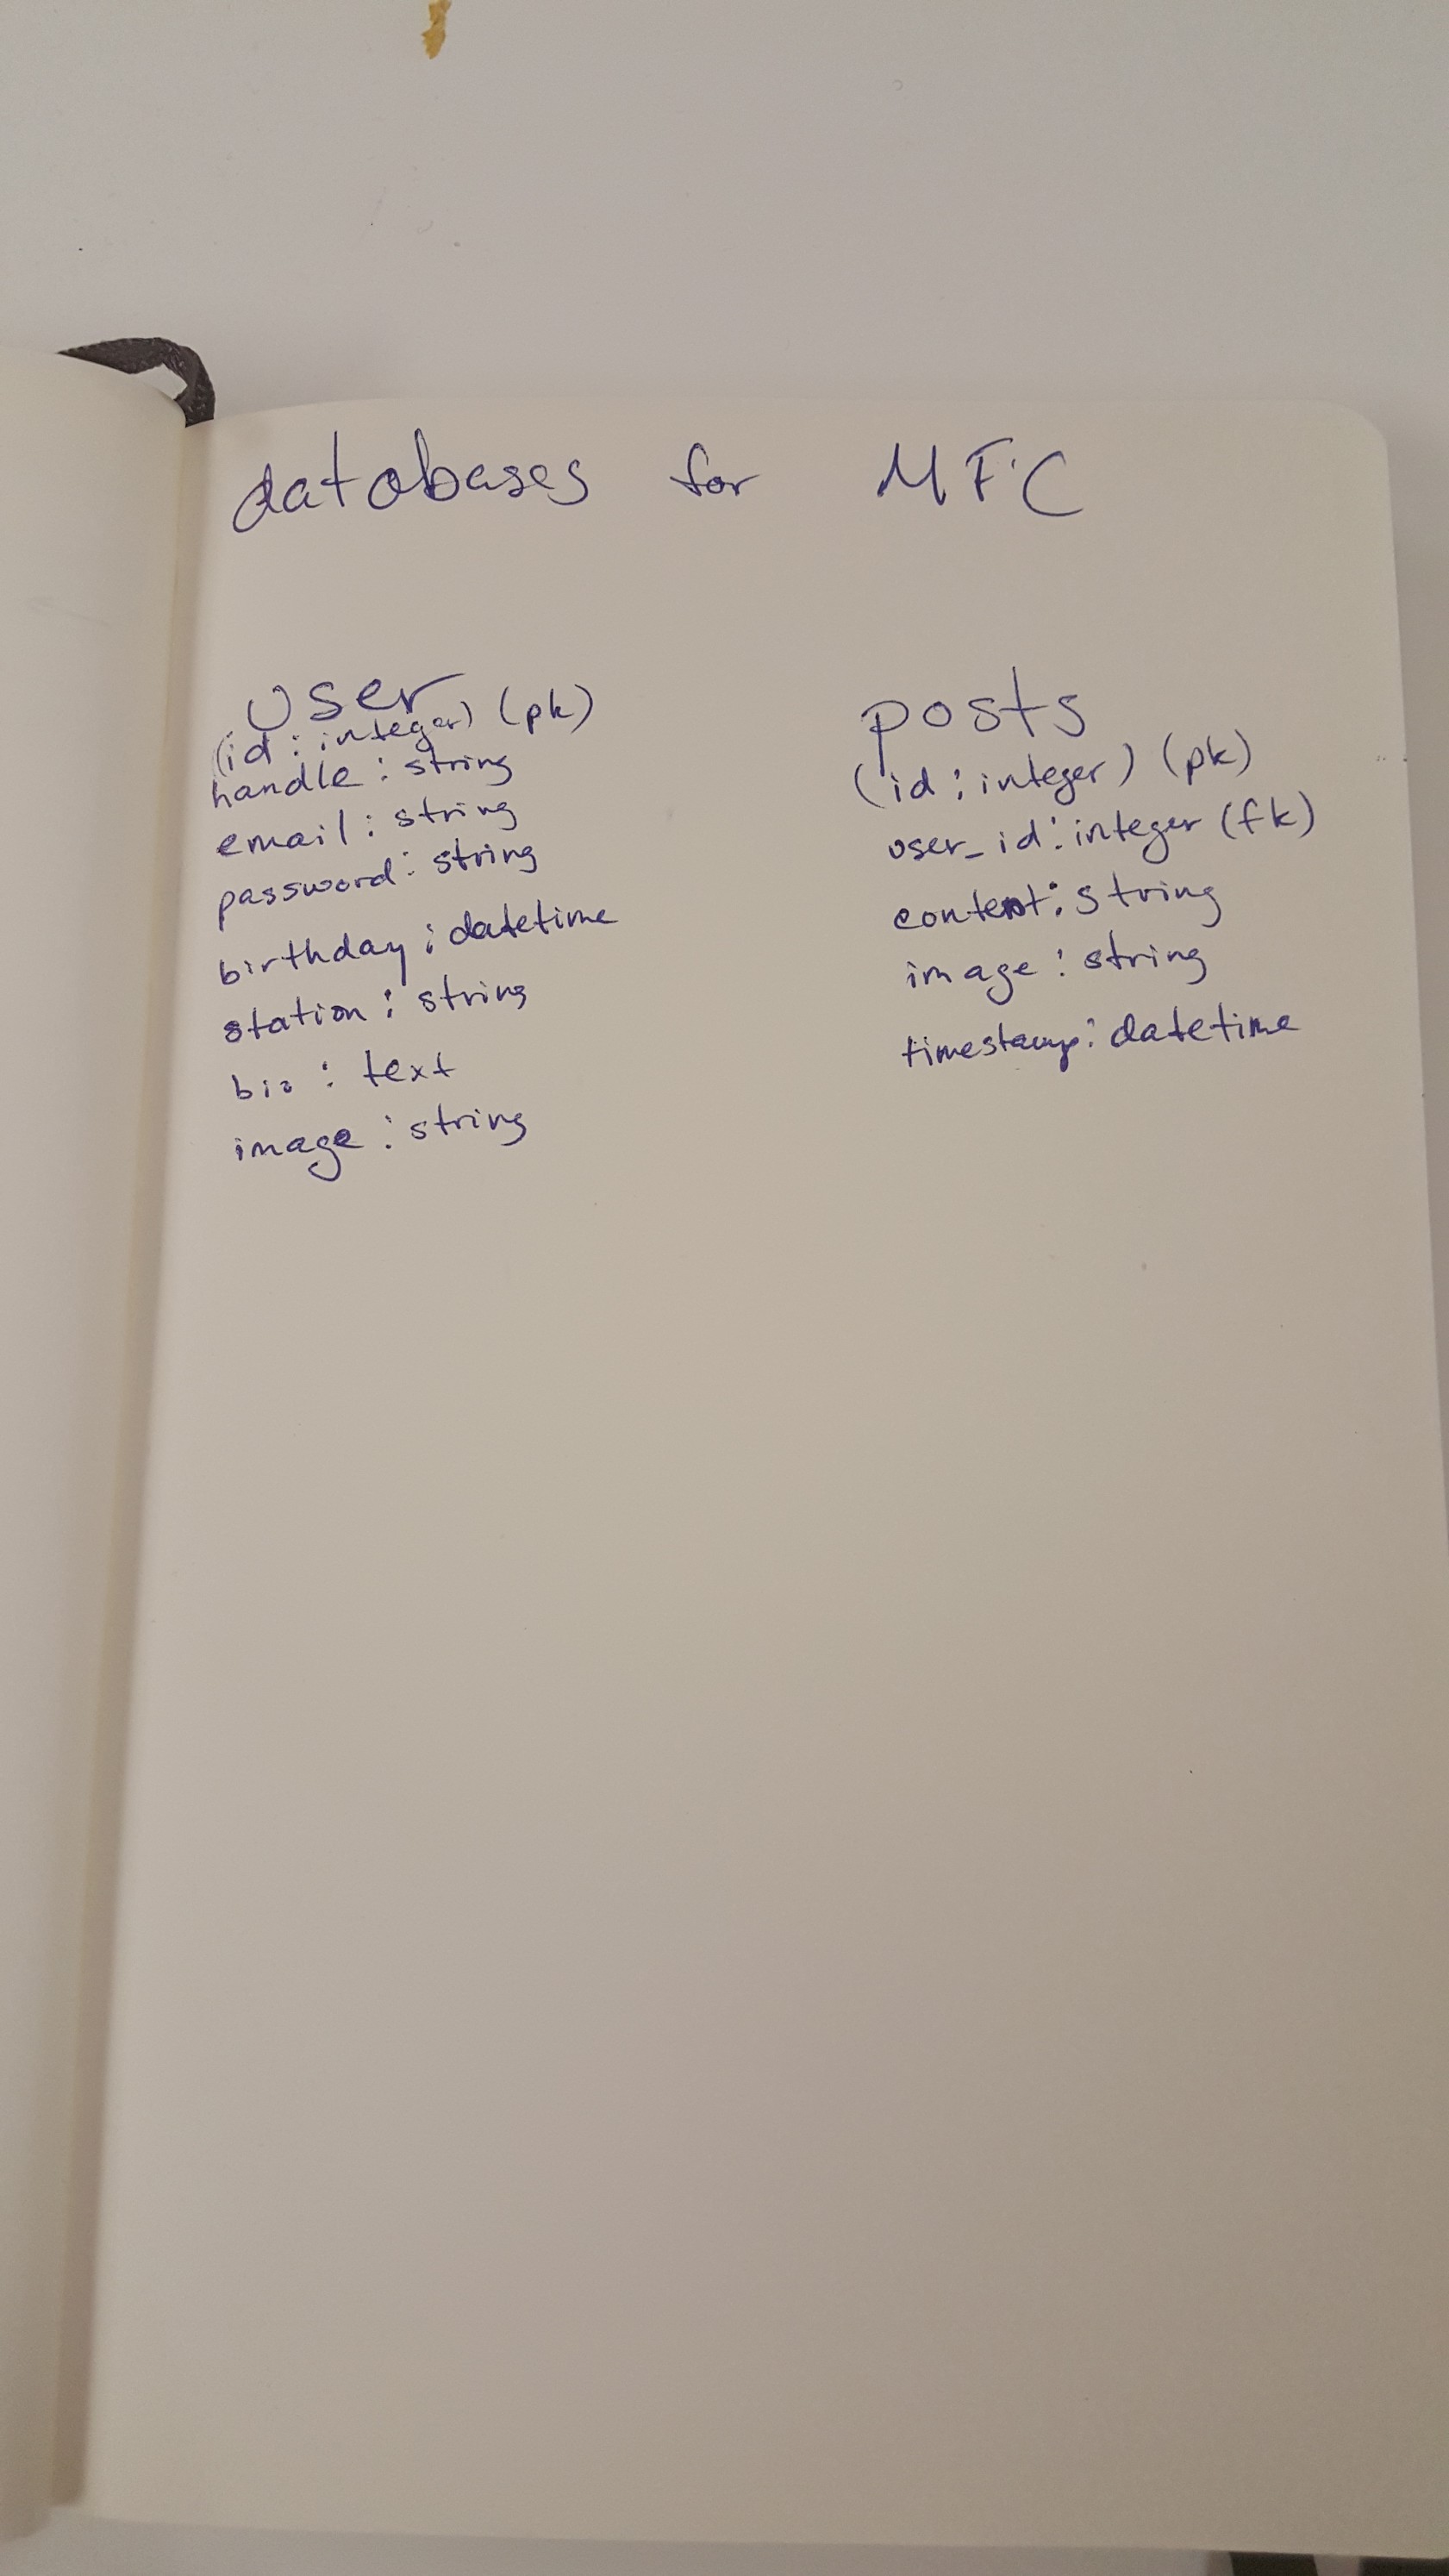 databases for MFC
user
(id: integer) (pk)
handle: string
email: string
password: string
birthday: datetime
station: string
bio: text
image: string
posts
(id: integer) (pk)
user_id: integer (fk)
content: string
image: string
timestamp: datetime